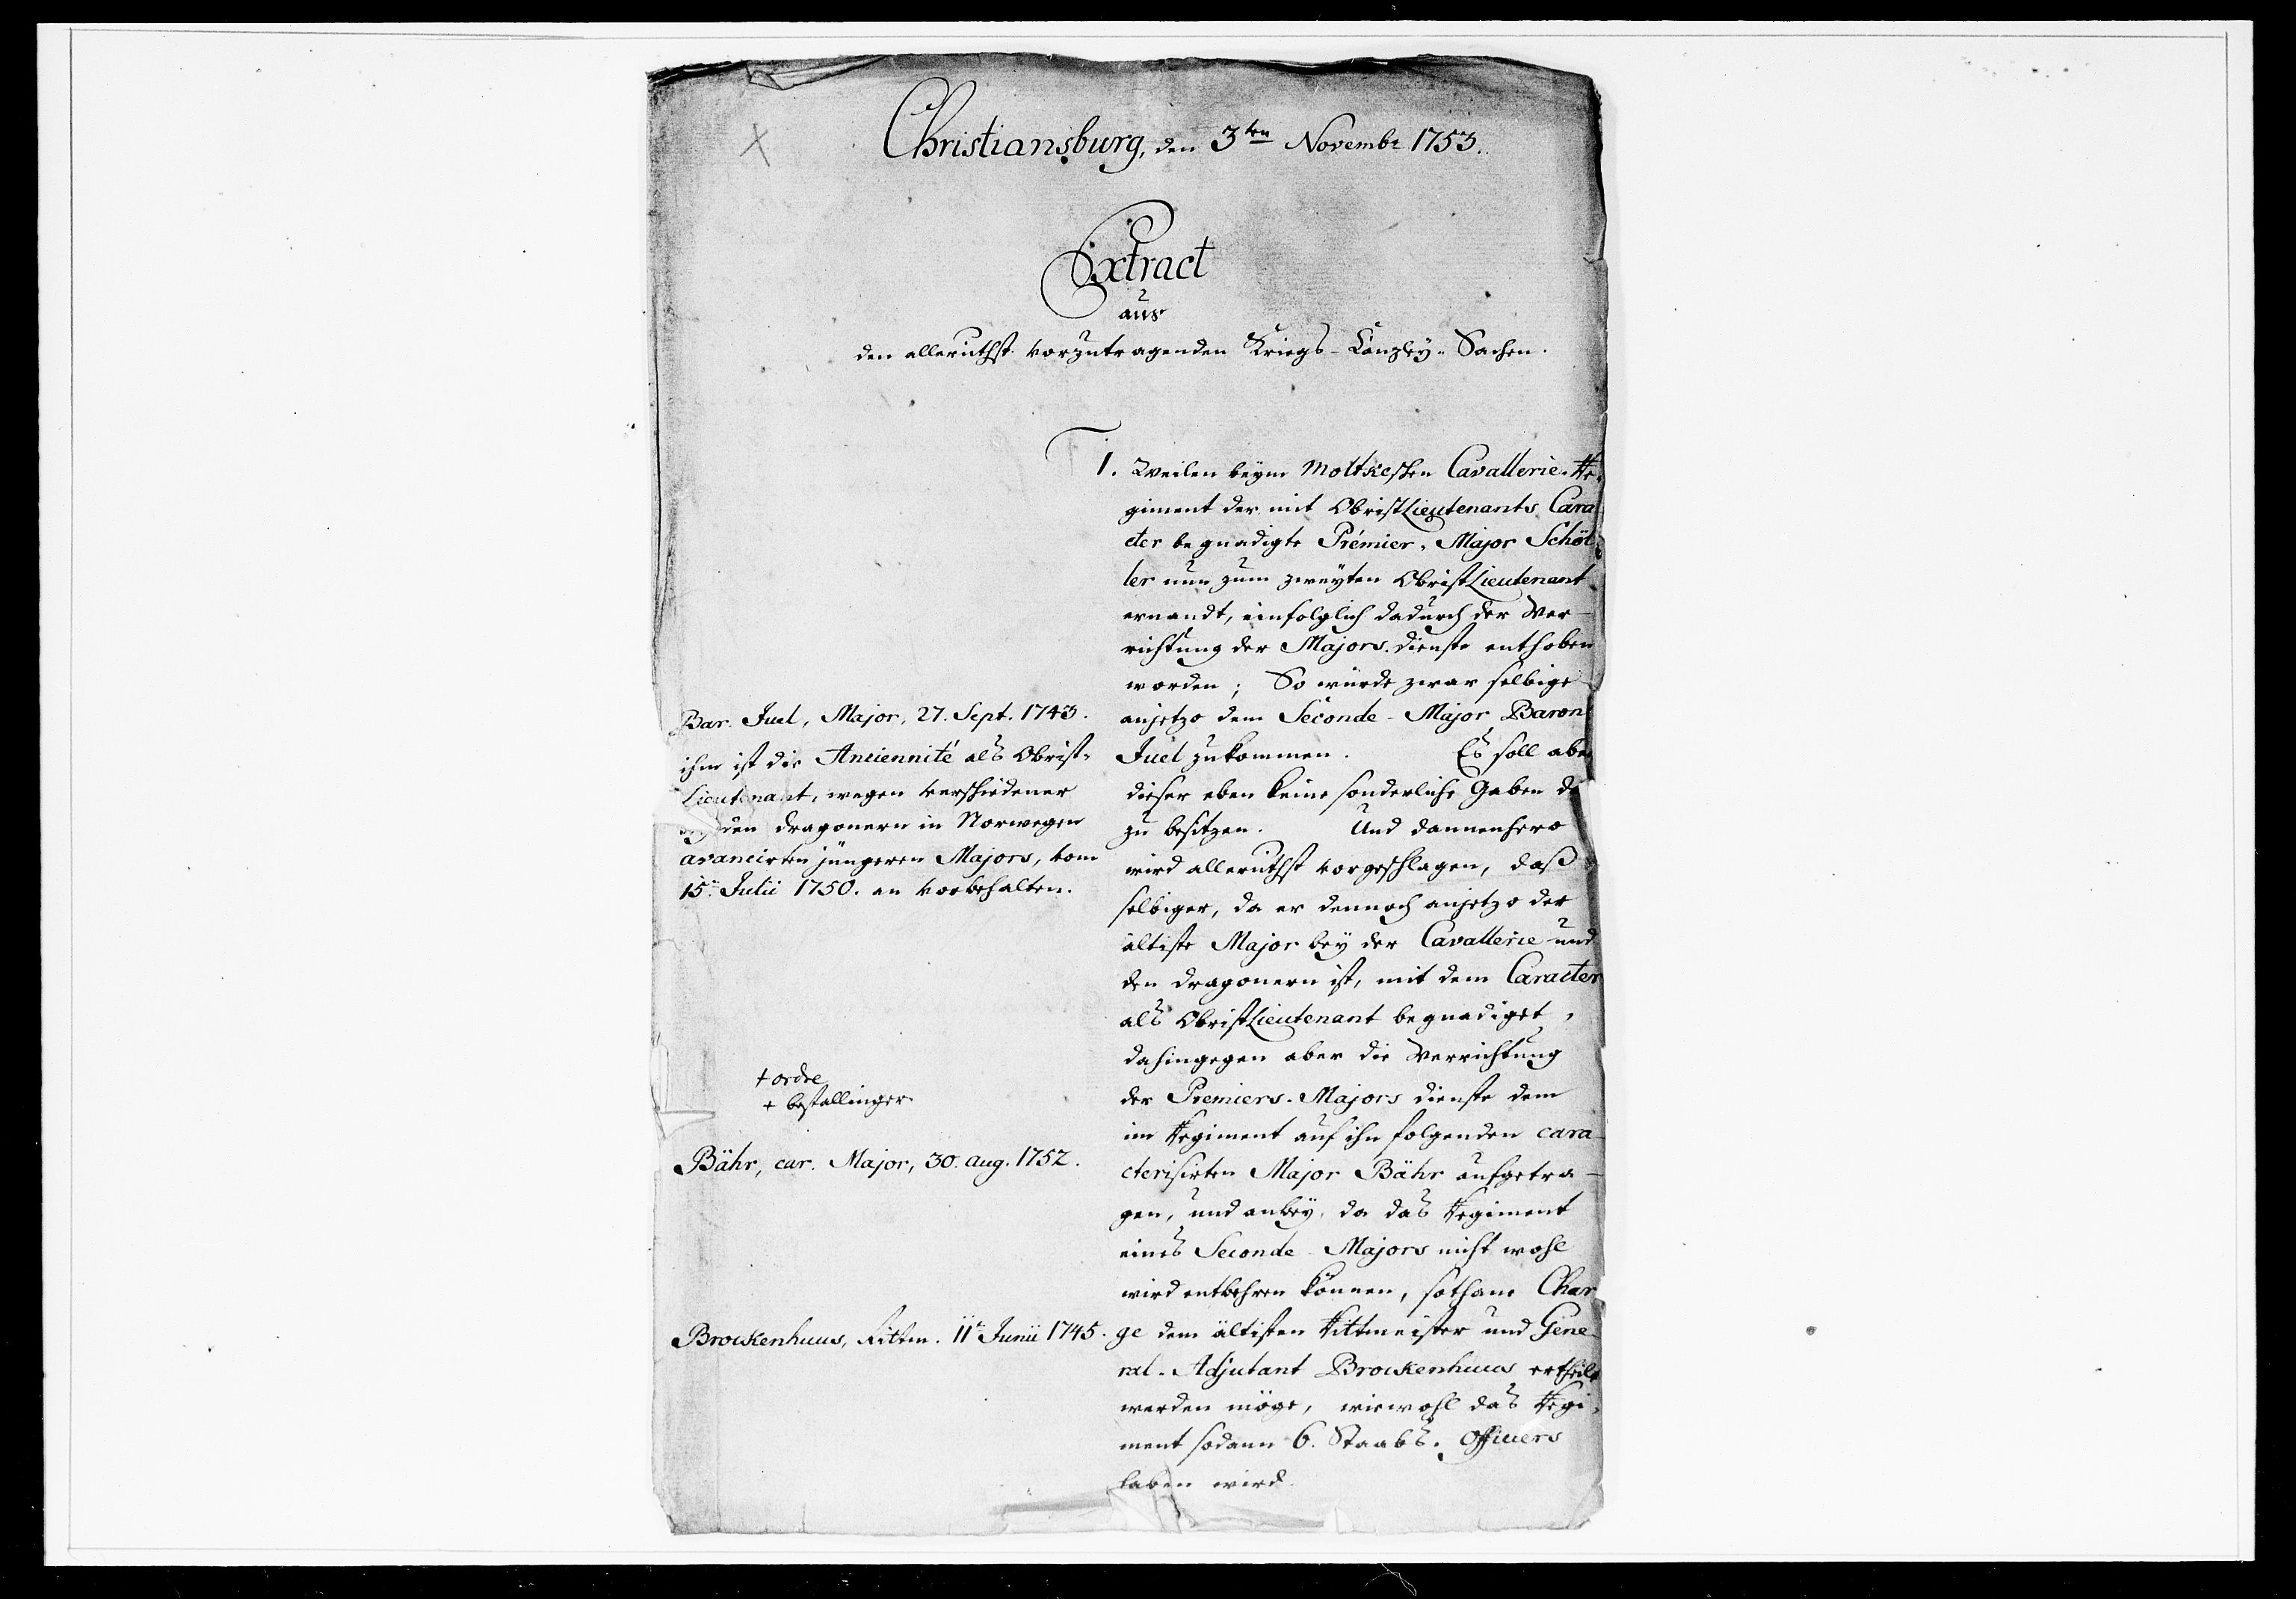 Christiansburg, den 3ten Novembr 1753.
Extract
aus
den alleruthst vorzutragenden Kriegs-Canzley-Sachen.
1. Weilen beym Moltkeschen Cavallerie-Re-
giment der mit ObristLieutenants Cara
cter begnadigte Prémier-Major Schöl-
ler nun zum zweyten ObristLieutenant
ernandt, einfolglich dadurch der Ver-
richtung der Majors-dienste enthoben
worden; So würde zwar selbige
anjetzo dem Seconde-Major Baron
Juel zukommen. Es soll aber
dieser eben keine sonderliche Gaben
zu besitzen. Und dannenhero
wird alleruthst vorgeschlagen, daß
selbiger, da er dennoch anjetzo der
ältiste Major bey der Cavallerie und
den Dragonern ist, mit dem Caracter
als ObristLieutenant begnadiget,
dahingegen aber die Verrichtung
der Premiers-Majors dienste dem
im Regiment auf ihn folgenden cara-
cterisirten Major Bähr aufgetra-
gen, und anbey, da das Regiment
eines Seconde-Majors nicht wohl
wird entbehren können, sothane Char
ge dem ältisten Rittmeister und Gene-
ral-Adjutant Brockenhuus ertheilt
werden möge, wiewohl das Regi-
ment sodann 6. Staabs-Officiers
haben wird.
Bar. Juel, Major, 27. Sept. 1743.
ihm ist die Anciennité als Obrist-
Lieutenant, wegen verschiedener
den Dragonern in Norwegen
avancirten jüngeren Majors, vom
15n Julii 1750. an vorbehalten.
+ ordre
+ bestallinger
Bähr, car. Major, 30. Aug. 1752.
Brockenhuus, Rittm. 11t Junii 1745.